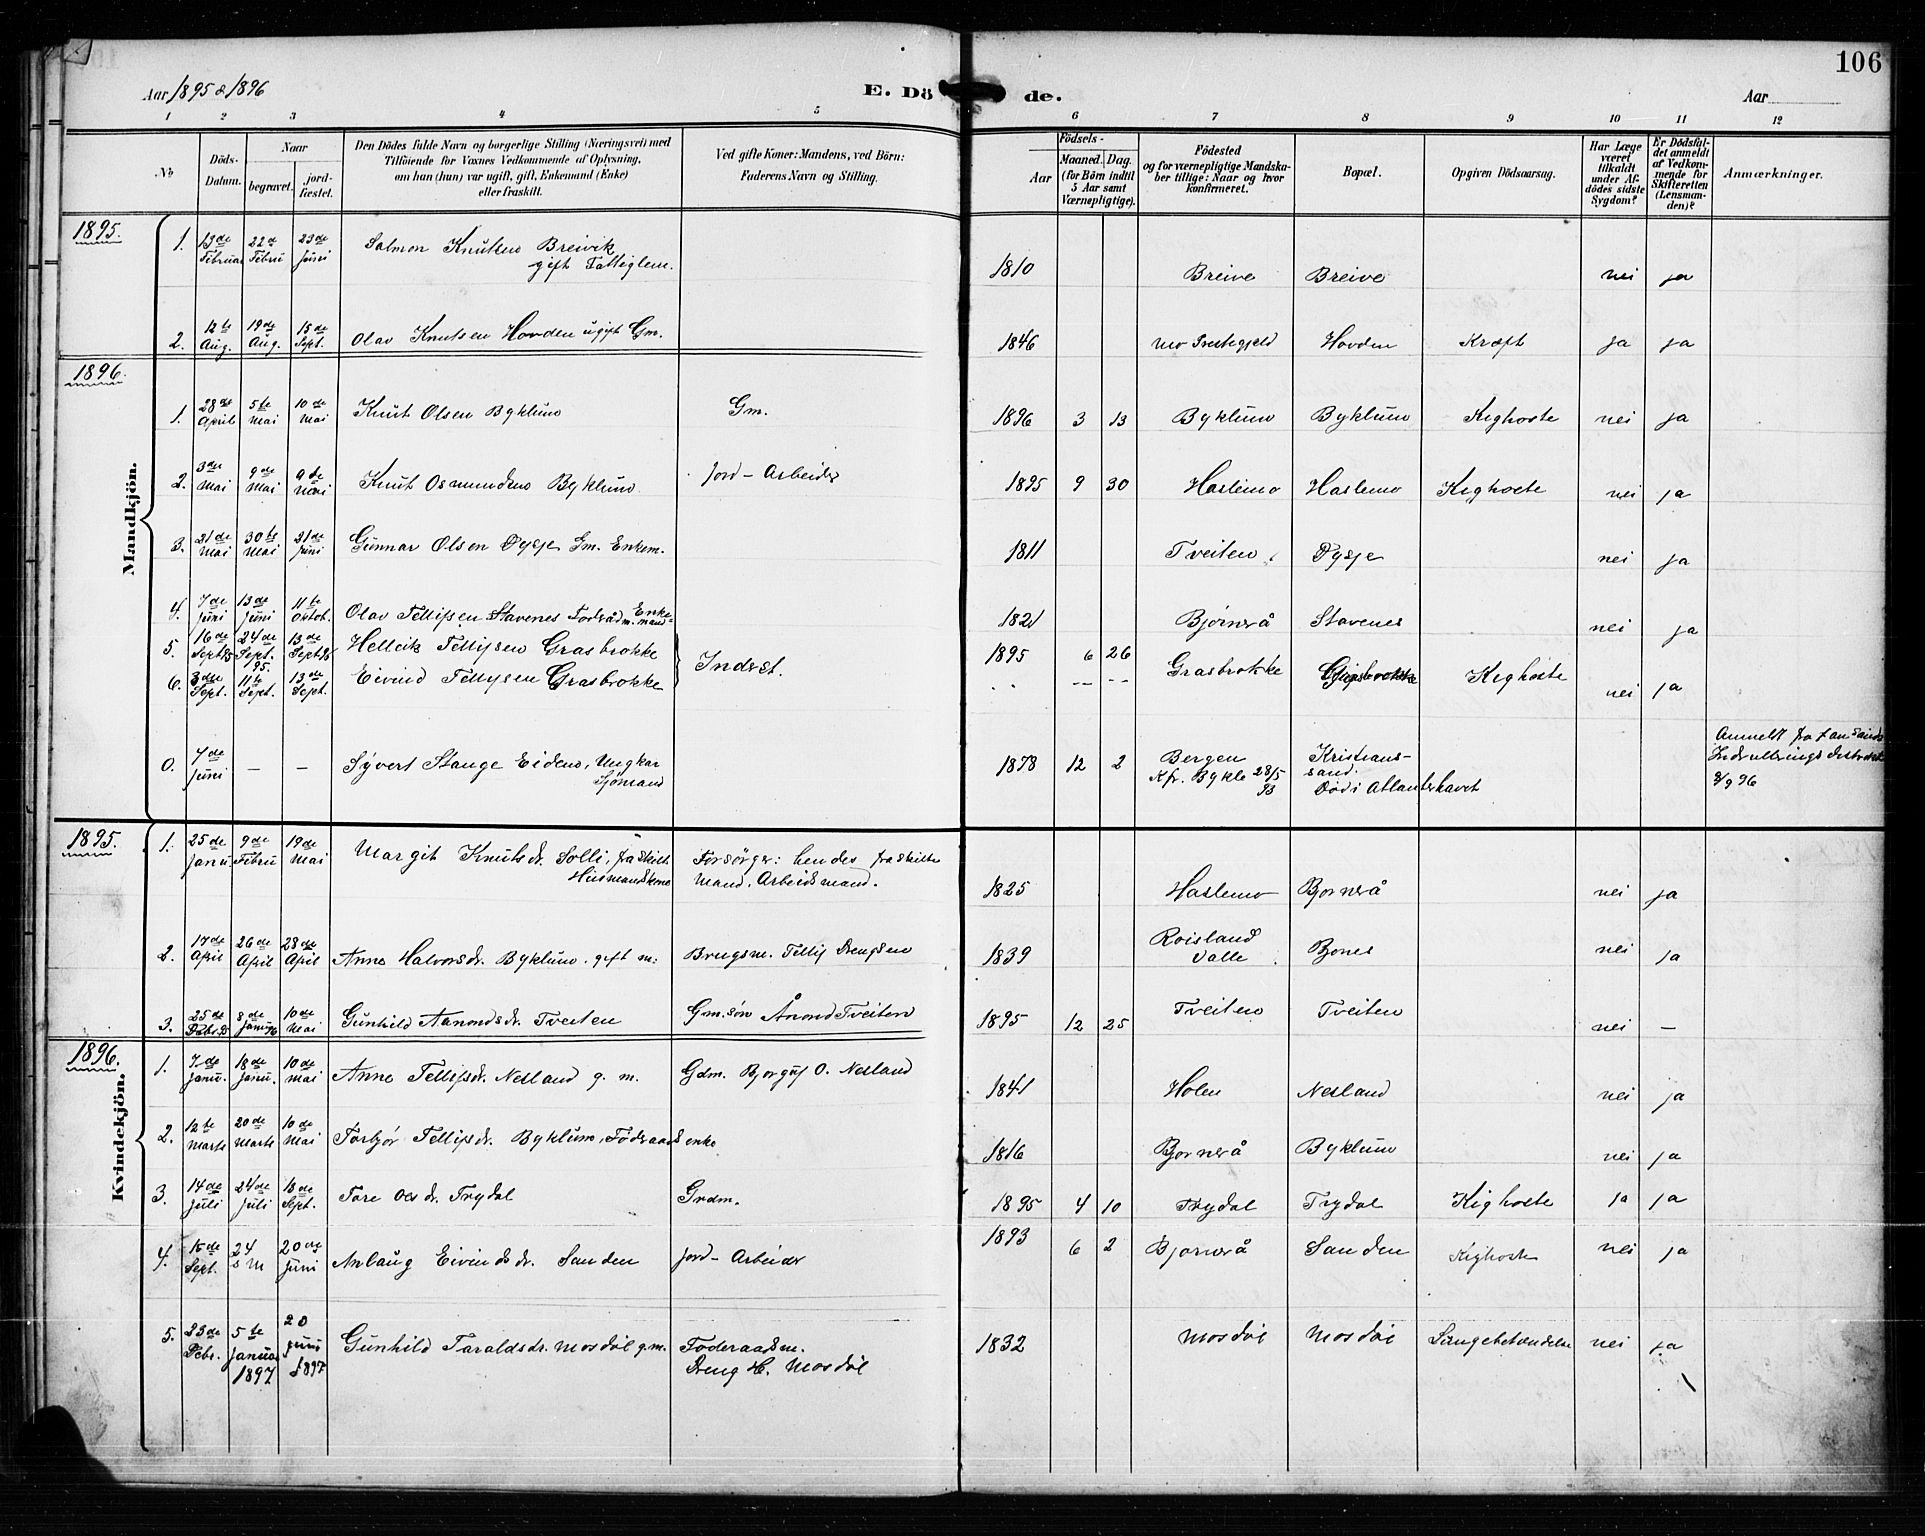 106
Aar 1895 & 1896
E. Dö de.
Aar
1 2 3 4 5 6 7 8 9 10 11 12
No
Döds-Datum.
Naar
begravet.
jord-fæstet.
Den Dödes fulde Navn og borgerlige Stilling (Næringsvei) med
Tilföiende for Voxnes Vedkommende af Oplysning,
om han (hun) var ugift, gift, Enkemand (Enke)
eller fraskilt.
Ved gifte Koner: Mandens, ved Börn:
Faderens Navn og Stilling.
Födsels-
Aar
Maaned. Dag.
(for Börn indtil
5 Aar samt
Værnepligtige).
Födested
og for værnepligtige Mandska-
ber tillige: Naar og hvor
konfirmeret.
Bopæl.
Opgiven Dödsaarsag.
Har Læge
været
tilkaldt
under Af-
dödes sidste
Sygdom?
Er Dödsfal-
det anmeldt
af Vedkom-
mende for
Skifteretten
(Lensman-
den)?
Anmærkninger.
Mandkjön.
1895.
1. 13de Februar 22de Febru 23de Juni Salmon Knutsen Breivik gift Fattiglem. 1810 Breive Breive nei ja
2. 12te Aug. 19de Aug. 15de Sept. Olav Knutsen Hovden ugift Gm. 1846 Mo Prestegjeld Hovden Kræft ja ja
1896.
1. 28de April 5te Mai 10de Mai Knut Olsen Byklum Gm. 1896 3 13 Byklum Byklum Kighoste nei ja
2. 3die Mai 9de Mai 9de Mai Knut Osmundsen Byklum Jord-Arbeider 1895 9 30 Haslemo Haslemo Kighoste nei ja
3. 21de Mai 30te Mai 21de Juni Gunnar Olsen Dysje Gm. Enkem. 1811 Tveiten Dysje nei ja
4. 7de Juni 13de Juni 11te Oktob. Olav Tellifsen Stavenes Foderådm. Enkemand 1821 Bjørnerå Stavenes nei ja
5. 16de Sept 95 24de Sept. 95. 13de Sept 96 Hellvik Tellifsen Grasbrokke Inderst. 1895 6 26 Grasbrokke Grasbrokke Kighoste nei ja
6. 3die Sept. 11te Sept. 13de Sept. Eivind Tellifsen Grasbrokke .. -- --
0. 7de Juni — — Syvert Stange Eidens, Ungkar Sjømand 1878 12 2 Bergen Kfr. Bykle 28/5 93 Kristianssand. Død i Atlanterhavet Anmelt fra
Indrulleringsdistriktet
8/9 96
Kvindekjön.
1895.
1. 25de Janu. 9de Febru 19de Mai Margit Knutsdr. Solli, fraskilt Husmandskone Forsörger: hendes fraskilte Mand. Arbeidsmand. 1825 Haslemo Bjornerå nei ja
2. 17de April 26de April 28de April Anne Halvorsdr. Byklum. gift m: Brugsm. Tellif Drengsen 1839 Roisland Valle Bjones nei ja
3. 25de Debr. 95 8de Janu 96 10de Mai Gunhild Aanondsdr. Tveiten Gm.søn Ånond Tveiten 1895 12 25 Tveiten Tveiten nei —
1896.
1. 7de Janu. 18de Janu. 10de Mai Anne Tellifsdr. Nesland g. m. Gdm. Bjorguf O. Nesland 1841 Holen Nesland nei ja
2. 12te Marts 20de Marts 10de Mai Torbjør Tellifsdr. Byklum, Föderaadsenke 1816 Bjornerå Byklum nei ja
3. 14de Juli 24de Juli 13de Sept. Tore Olsdr. Trydal Grdm. 1895 4 10 Trydal Trydal Kighoste ja ja
4. 15de Sept. 24 s M 20de Juni Anlaug Eivindsdr. Sanden Jord-Arbeider 1893 6 2 Bjornerå Sanden Kighoste nei ja
5. 23de Debr. 5te Januar 1897 20 Juni 1897 Gunhild Taraldsdr. Mosdøl g.m. Foderaadsm. Dreng H. Mosdøl 1832 Mosdøl Mosdøl Lungebetændelse nei ja